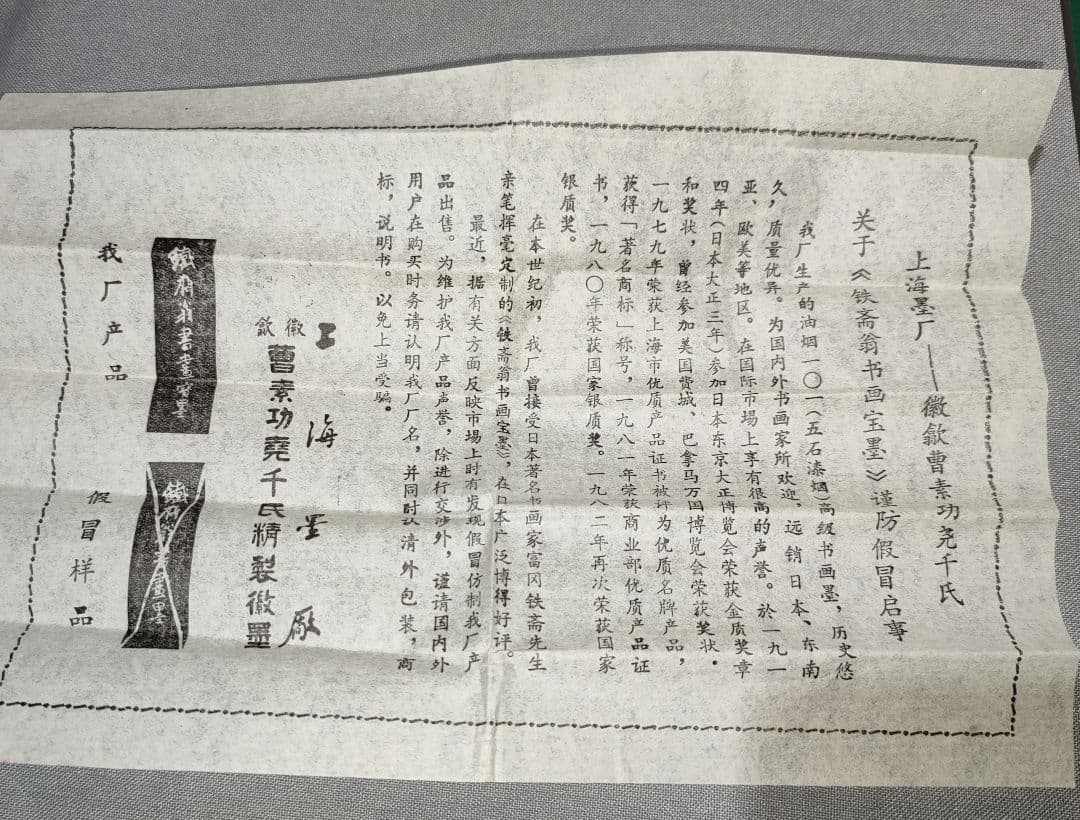 上海墨厂——徽歙曹素功尧千氏
关于《铁斋翁书画宝墨》谨防假冒启事
我厂生产的油烟一〇一(五石漆烟)高级书画墨，历史悠
久，质量优异。为国内外书画家所欢迎，远销日本、东南
亚、欧美等地区。在国际市场上享有很高的声誉。於一九一
四年(日本大正三年)参加日本东京大正博览会荣获金质奖章
和奖状，曾经参加美国费城、巴拿马万国博览会荣获奖状．
一九七九年荣获上海市优质产品证书被评为优质名牌产品，
获得「著名商标」称号，一九八一年荣获商业部优质产品证
书，一九八〇年荣获国家银质奖。一九八二年再次荣获国家
银质奖。
在本世纪初，我厂曾接受日本著名书画家富冈铁斋先生
亲笔挥毫定制的《铁斋翁书画宝墨》，在日本广泛博得好评。
最近，据有关方面反映市场上时有发现假冒仿制我厂产
品出售。为维护我厂产品声誉，除进行交涉外，谨请国内外
用户在购买时务请认明我厂厂名，并同时认清外包装，商
标，说明书。以免上当受骗。
上海墨厰
徽歙
曹素功堯千氏精製徽墨
鐵齋翁書畫寶墨
我厂产品
假冒样品